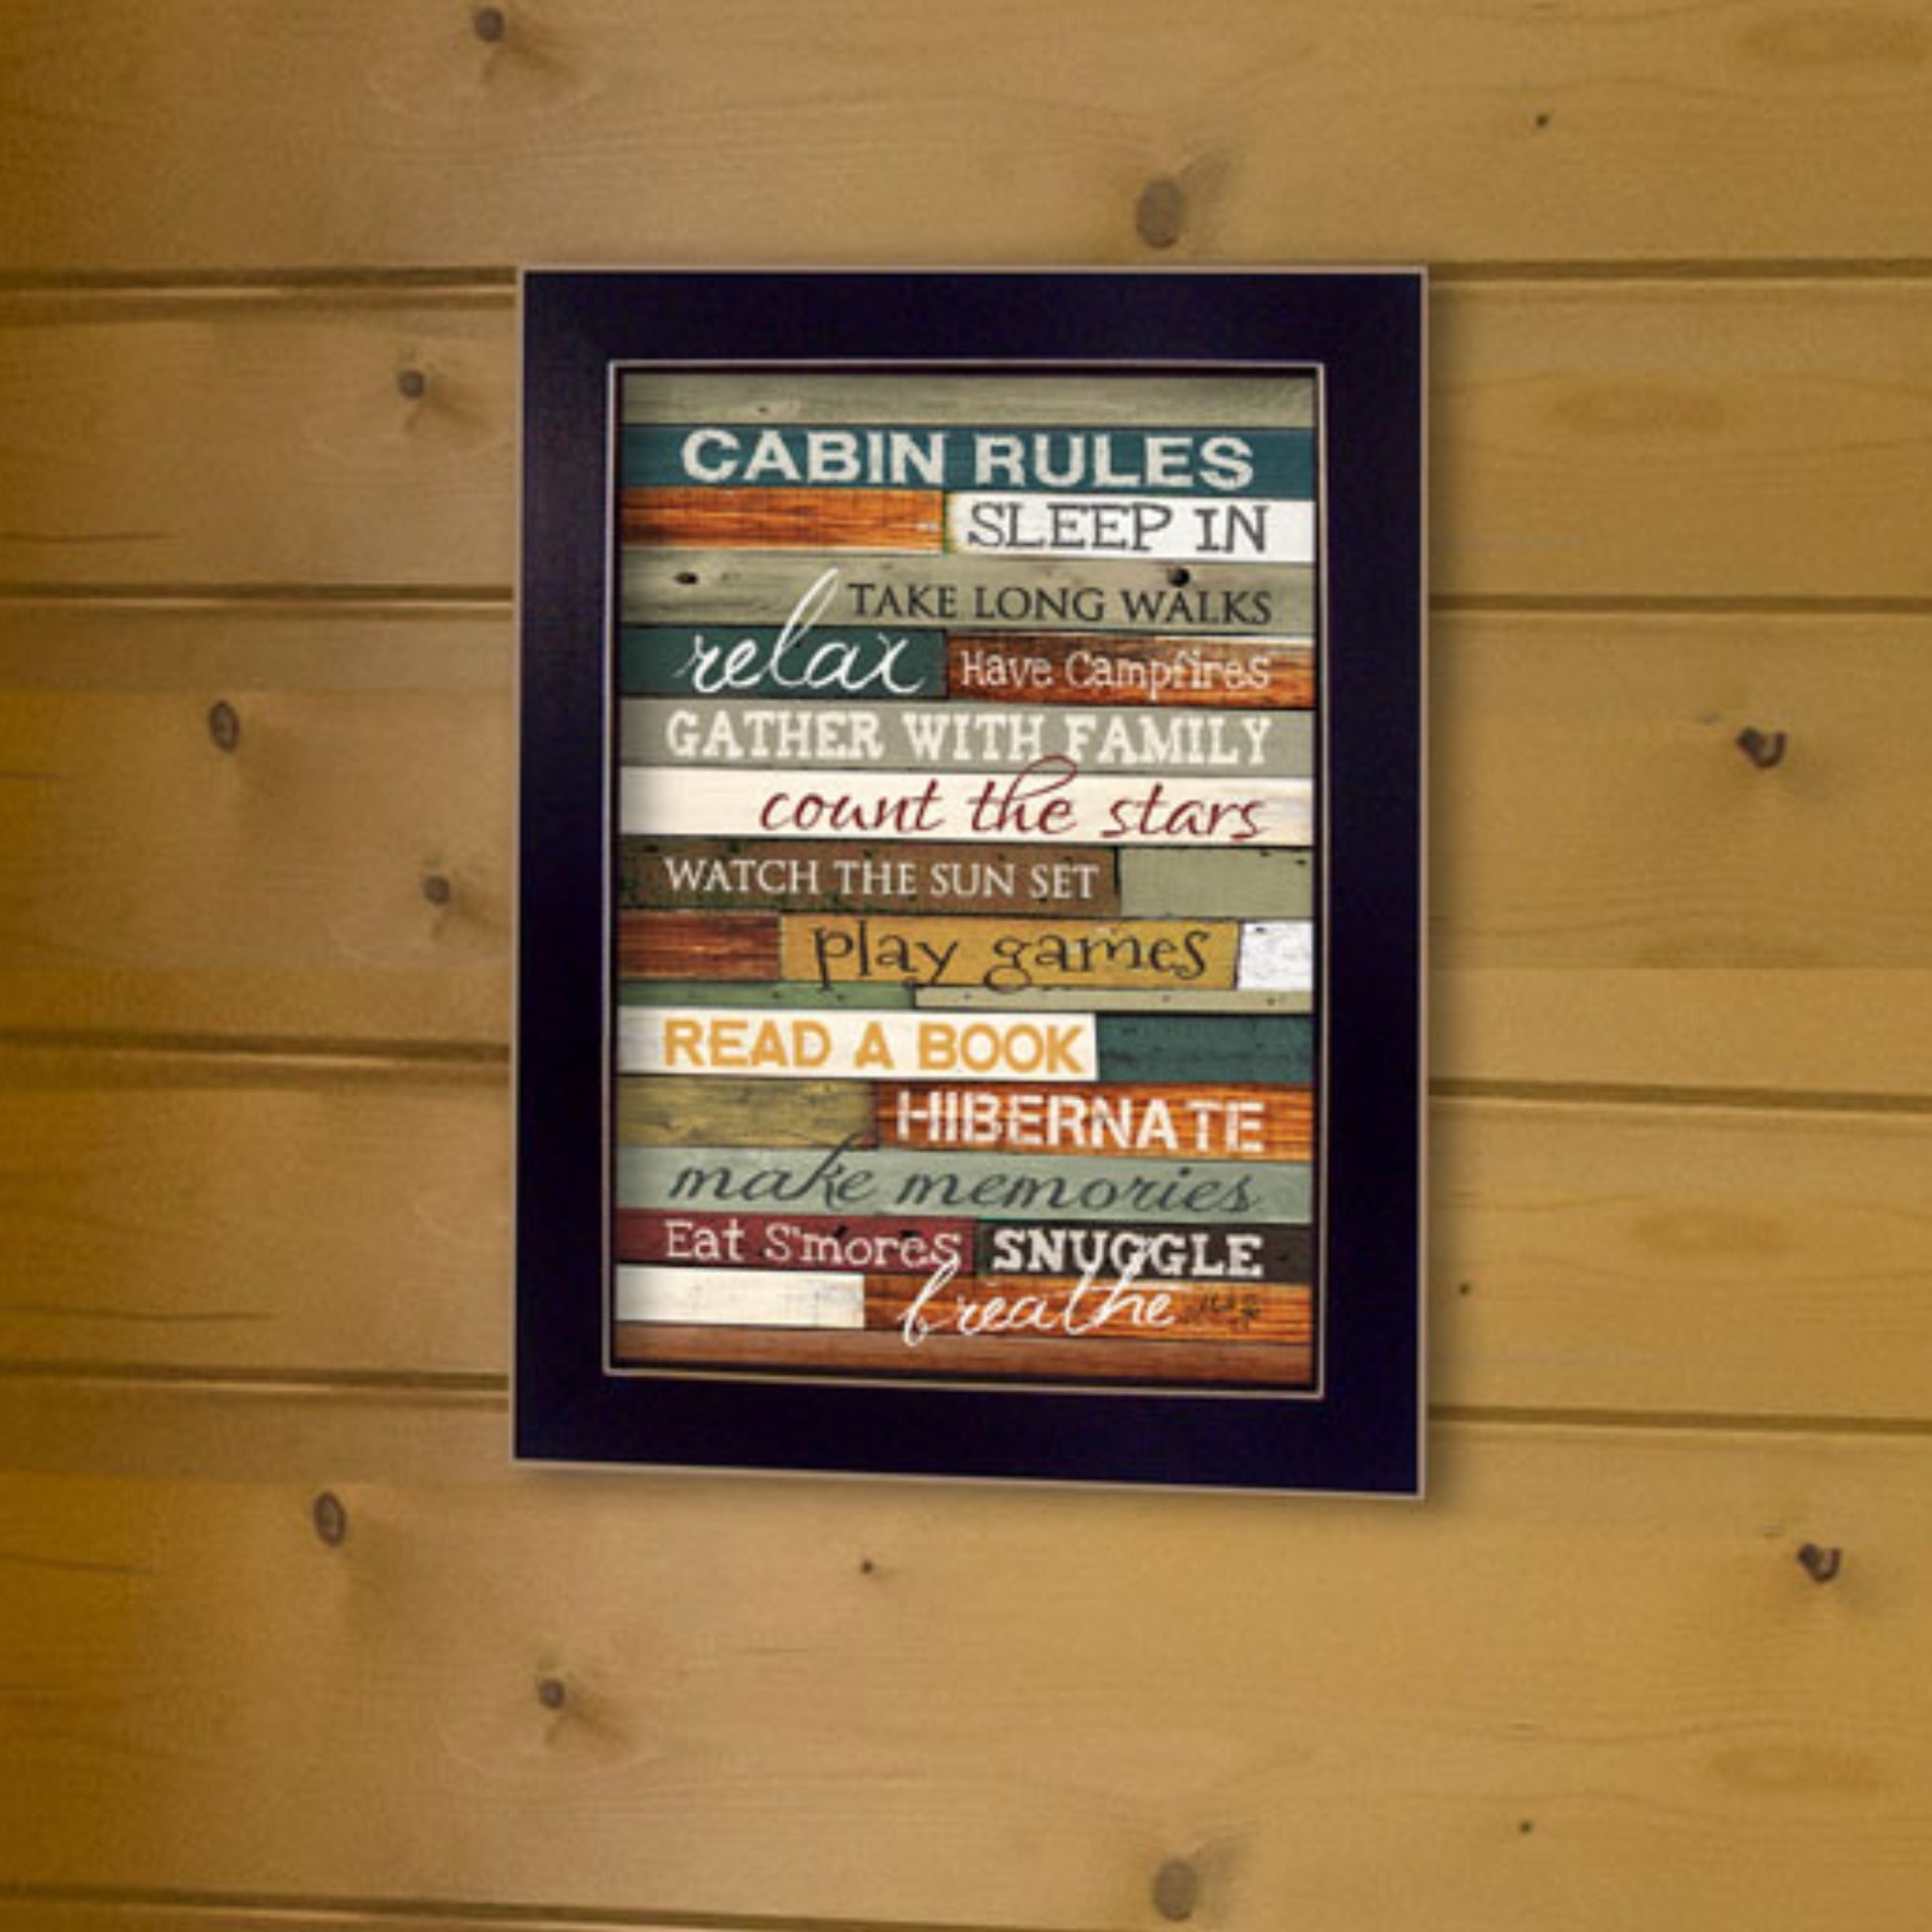 CABIN RULES
SLEEP IN
TAKE LONG WALKS
relax Have Campfires
GATHER WITH FAMILY
count the stars
WATCH THE SUN SET
play games
READ A BOOK
HIBERNATE
make memories
Eat S'mores SNUGGLE
breathe